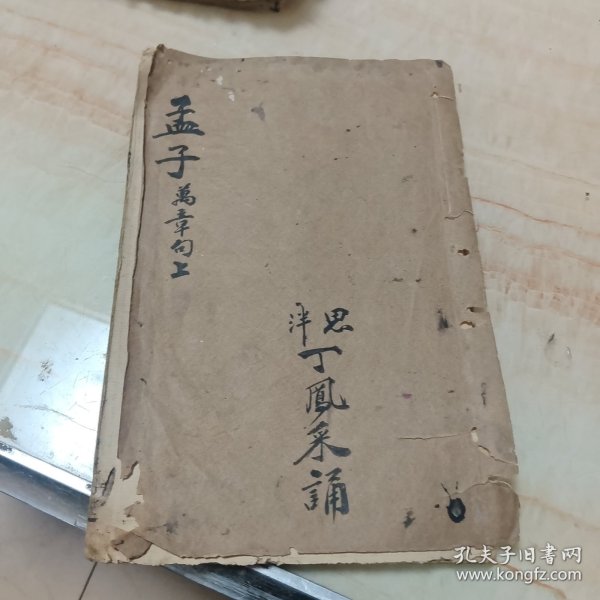 孟子萬章句上
思泮
丁鳳采誦
孔夫子旧書网
www.kongfz.com